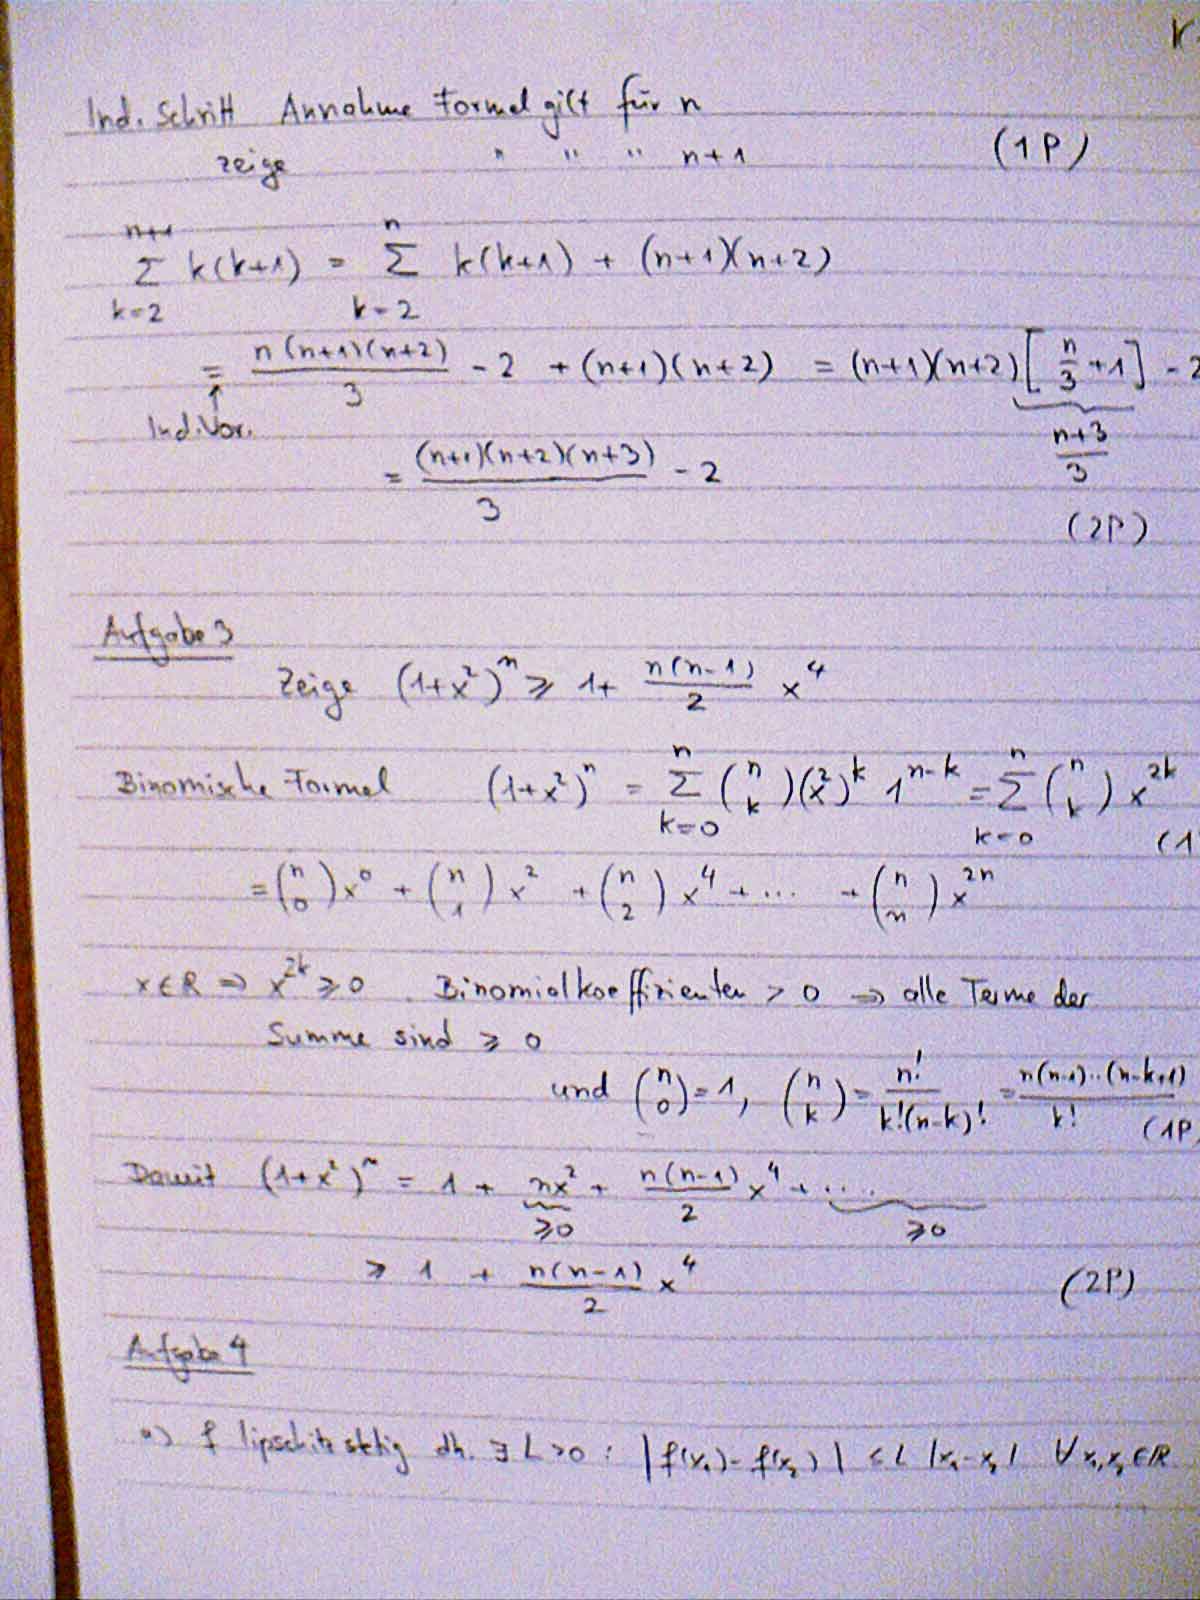 Ind. Schritt Annahme Formel gilt für n
zeige " " " n+1 (1P)
n+1 ∑ k=2 k(k+1) = n ∑ k=2 k(k+1) + (n+1)(n+2)
= n(n+1)(n+2)/3 - 2 + (n+1)(n+2) = (n+1)(n+2) [n/3 + 1] - 2
Ind.Vor. n+3/3
= (n+1)(n+2)(n+3)/3 - 2
(2P)
Aufgabe 3
Zeige (1+x²)ⁿ ≥ 1+ n(n-1)/2 x⁴
Binomische Formel (1+x²)ⁿ = n ∑ k=0 (n k)(x²)^k 1^{n-k} = n ∑ k=0 (n k) x^{2k}
(1
= (n 0) x⁰ + (n 1) x² + (n 2) x⁴ + ... + (n n) x^{2n}
x∈R ⇒ x^{2k} ≥ 0 . Binomialkoeffizienten > 0 ⇒ alle Terme der
Summe sind ≥ 0
und (n 0) = 1, (n k) = n!/k!(n-k)! = n(n-1)..(n-k+1)/k!
(1P
Damit (1+x²)ⁿ = 1 + nx² + n(n-1)/2 x⁴ + ....
≥0 ≥0
≥ 1 + n(n-1)/2 x⁴ (2P)
Aufgabe 4
a) f lipschitzstetig dh. ∃ L>0 : |f(x₁) - f(x₂)| ≤ L |x₁-x₂| ∀ x₁,x₂ ∈ R